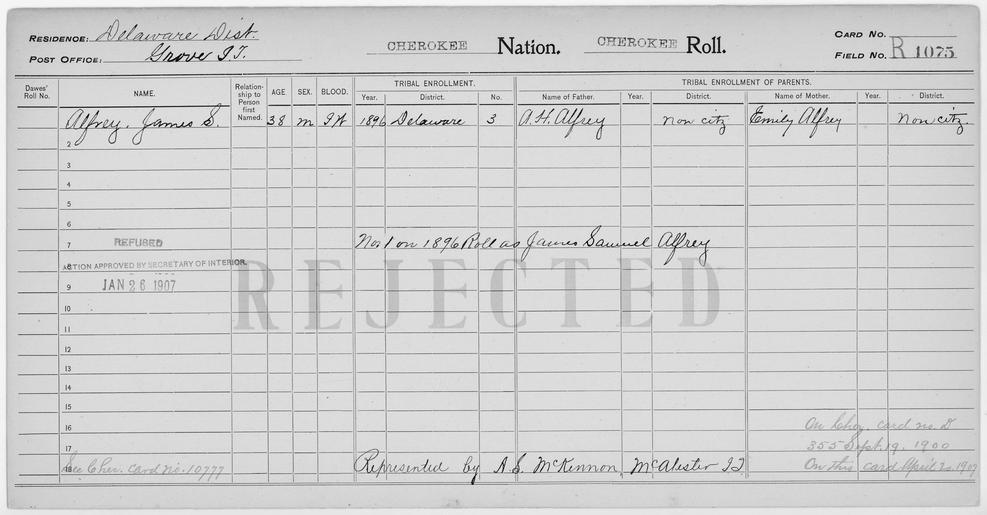 RESIDENCE: Delaware Dist.
POST OFFICE: Grove I.T.
CHEROKEE Nation. CHEROKEE Roll.
CARD NO.
FIELD NO. R 1075
Dawes' Roll No. NAME. Relationship to Person first Named. AGE. SEX. BLOOD. TRIBAL ENROLLMENT. TRIBAL ENROLLMENT OF PARENTS.
Year. District. No. Name of Father. Year. District. Name of Mother. Year. District.
Alfrey, James S. 38 m IW 1896 Delaware 3 A.H. Alfrey non citz Emily Alfrey non citz.
2
3
4
5
6
7 REFUSED No 1 on 1896 Roll as James Samuel Alfrey
8 ACTION APPROVED BY SECRETARY OF INTERIOR.
9 JAN 26 1907
REJECTED
10
11
12
13
14
15
16 On Cher. card no. D
17 355 Sept. 19, 1900
18 See Cher. card no. 10777 Represented by A.S. McKennon, McAlester I.T. On this card April 20 1907